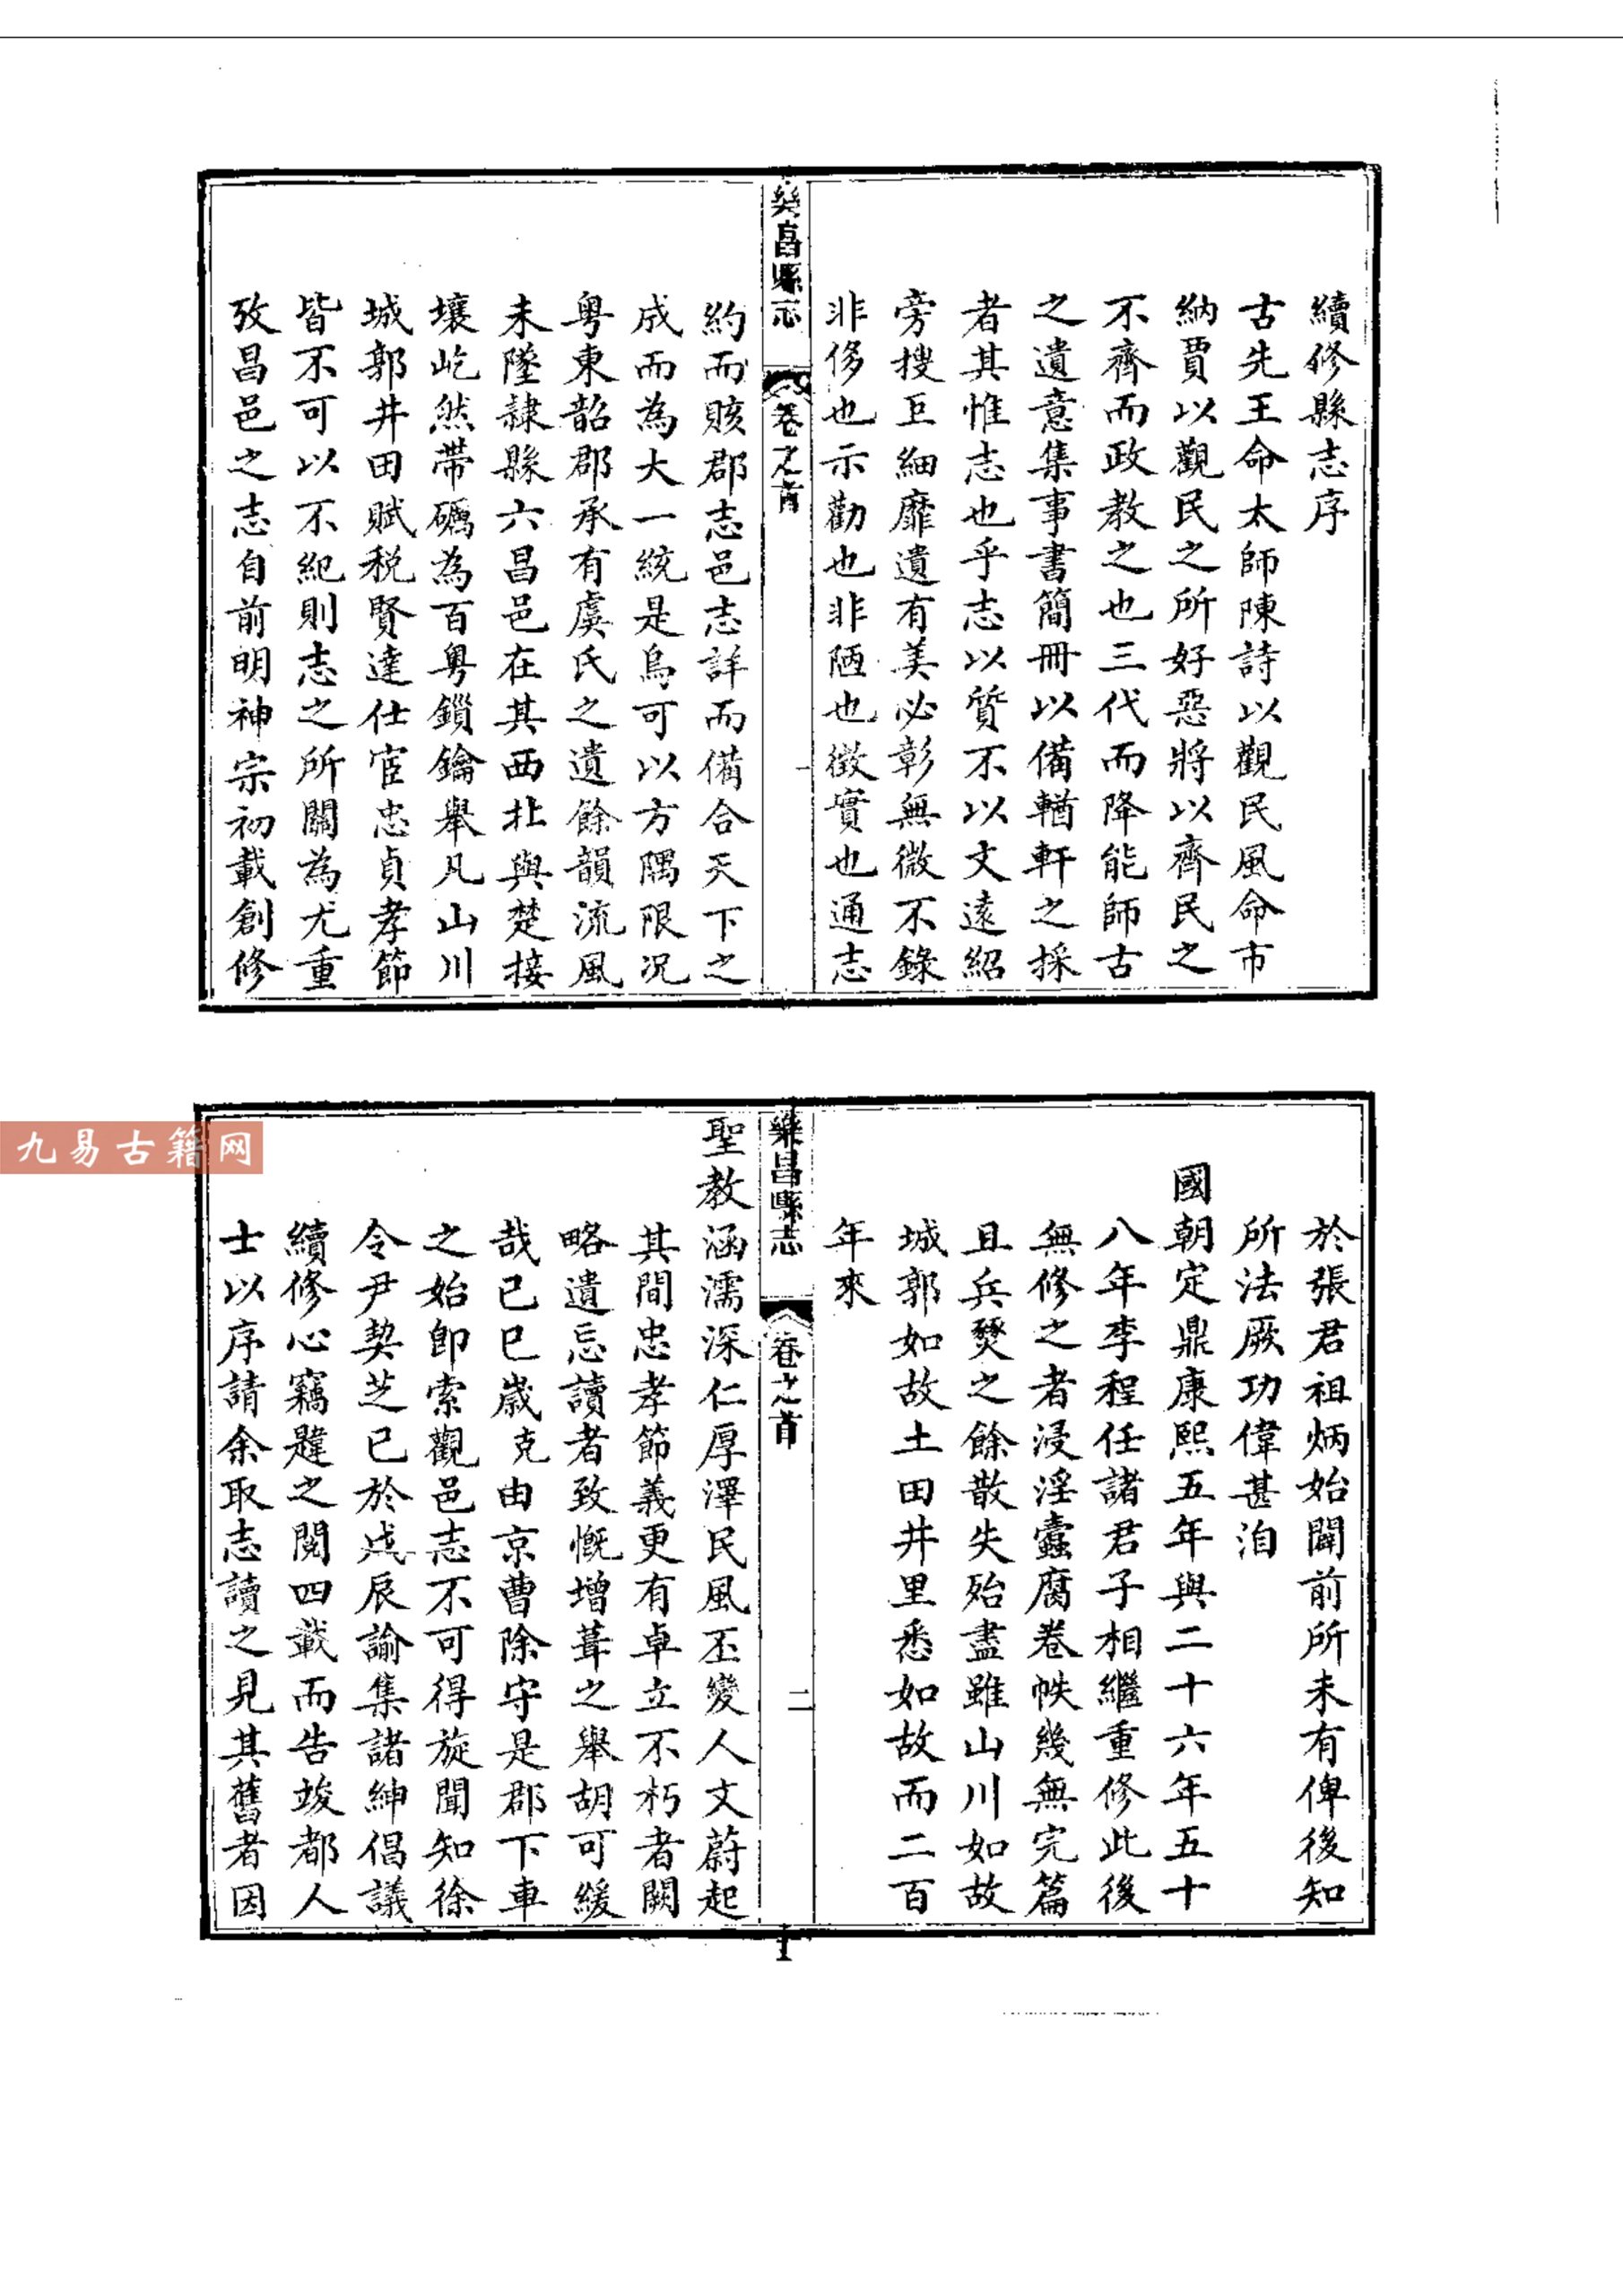 續修縣志序
古先王命太師陳詩以觀民風命市
納賈以觀民之所好惡將以齊民之
不齊而政教之也三代而降能師古
之遺意集事書簡冊以備輶軒之採
者其惟志也乎志以質不以文遠紹
旁搜巨細靡遺有美必彰無微不錄
非侈也示勸也非陋也徵實也通志
樂昌縣志
卷之首
一
約而賅郡志邑志詳而備合天下之
成而為大一統是烏可以方隅限况
粤東韶郡承有虞氏之遺餘韻流風
未墜隷縣六昌邑在其西北與楚接
壤屹然帶礪為百粤鎖鑰舉凡山川
城郭井田賦税賢達仕宦忠貞孝節
皆不可以不紀則志之所關為尤重
攷昌邑之志自前明神宗初載創修
於張君祖炳始開前所未有俾後知
所法厥功偉甚洎
國朝定鼎康熙五年與二十六年五十
八年李程任諸君子相繼重修此後
無修之者浸淫蠹腐卷帙幾無完篇
且兵燹之餘散失殆盡雖山川如故
城郭如故土田井里悉如故而二百
年來
樂昌縣志
卷之首
二
聖教涵濡深仁厚澤民風丕變人文蔚起
其間忠孝節義更有卓立不朽者闕
略遺忘讀者致慨增葺之舉胡可緩
哉已巳歲克由京曹除守是郡下車
之始卽索觀邑志不可得旋聞知徐
令尹契芝已於戊辰諭集諸紳倡議
續修心竊韙之閱四載而告竣都人
士以序請余取志讀之見其舊者因
九易古籍网